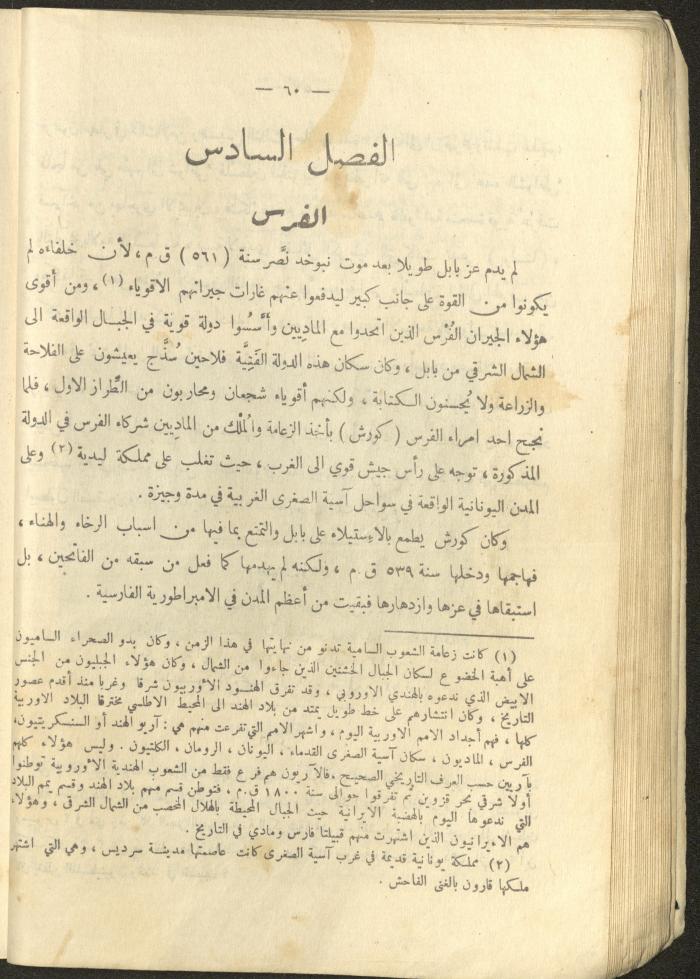 — ٦٠ —
الفصل السادس
الفرس
لم يدم عز بابل طويلا بعد موت نبوخد نَصَّر سنة ( ٥٦١ ) ق م، لأن خلفاءه لم
يكونوا من القوة على جانب كبير ليدفعوا عنهم غارات جيرانهم الاقوياء (١)، ومن أقوى
هؤلاء الجيران الفُرْس الذين اتحدوا مع المادِيين وأَسَّسُوا دولة قوية في الجبال الواقعة الى
الشمال الشرقي من بابل ، وكان سكان هذه الدولة الفَتِيَّة فلاحين سُذَّج يعيشون على الفلاحة
والزراعة ولا يُحسنون الكتابة ، ولكنهم أقوياء شجعان ومحاربون من الطِّراز الاول ، فلما
نجح احد امراء الفرس ( كورش ) بأخذ الزعامة والمُلْك من المادِيين شركاء الفرس في الدولة
المذكورة ، توجه على رأس جيش قوي الى الغرب ، حيث تغلب على مملكة ليدية (٢) وعلى
المدن اليونانية الواقعة في سواحل آسية الصغرى الغربية في مدة وجيزة .
وكان كورش يطمع بالاستيلاء على بابل والتمتع بما فيها من اسباب الرخاء والهناء ،
فهاجمها ودخلها سنة ٥٣٩ ق.م ، ولكنه لم يهدمها كما فعل من سبقه من الفاتحين ، بل
استبقاها في عزها وازدهارها فبقيت من أعظم المدن في الامبراطورية الفارسية .
(١) كانت زعامة الشعوب السامية تدنو من نهايتها في هذا الزمن ، وكان بدو الصحراء الساميون
على أهبة الخضوع لسكان الجبال الخشنين الذين جاءوا من الشمال ، وكان هؤلاء الجبليون من الجنس
الابيض الذي ندعوه بالهندي الاوروبي ، وقد تفرق الهنود الأوربيون شرقا وغربا منذ أقدم عصور
التاريخ ، وكان انتشارهم على خط طويل يمتد من بلاد الهند الى المحيط الاطلسي مخترقا البلاد الاوربية
كلها ، فهم أجداد الامم الاوربية اليوم ، واشهر الامم التي تفرعت منهم هي : آريو الهند أو السنسكريتيون،
الفرس ، الماديون ، سكان آسية الصغرى القدماء ، اليونان ، الرومان ، الكلتيون . وليس هؤلاء كلهم
بآريين حسب العرف التاريخي الصحيح ، فالآريون هم فرع فقط من الشعوب الهندية الأوروبية توطنوا
أولا شرقي بحر قزوين ثم تفرقوا حوالى سنة ١٨٠٠ ق.م ، فتوطن قسم منهم بلاد الهند وقسم يمم البلاد
التي ندعوها اليوم بالهضبة الايرانية حيث الجبال المحيطة بالهلال المخصب من الشمال الشرقي ، وهؤلاء
هم الايرانيون الذين اشتهرت منهم قبيلتا فارس ومادي في التاريخ .
(٢) مملكة يونانية قديمة في غرب آسية الصغرى كانت عاصمتها مدينة سرديس ، وهي التي اشتهر
ملكها قارون بالغنى الفاحش .